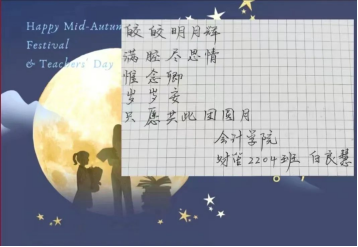 Happy Mid-Autum
Festival
& Teachers' Day
皎皎明月辉
满腔尽思情
惟念卿
岁岁安
只愿共此团圆月
会计学院
财管2204班 白良慧